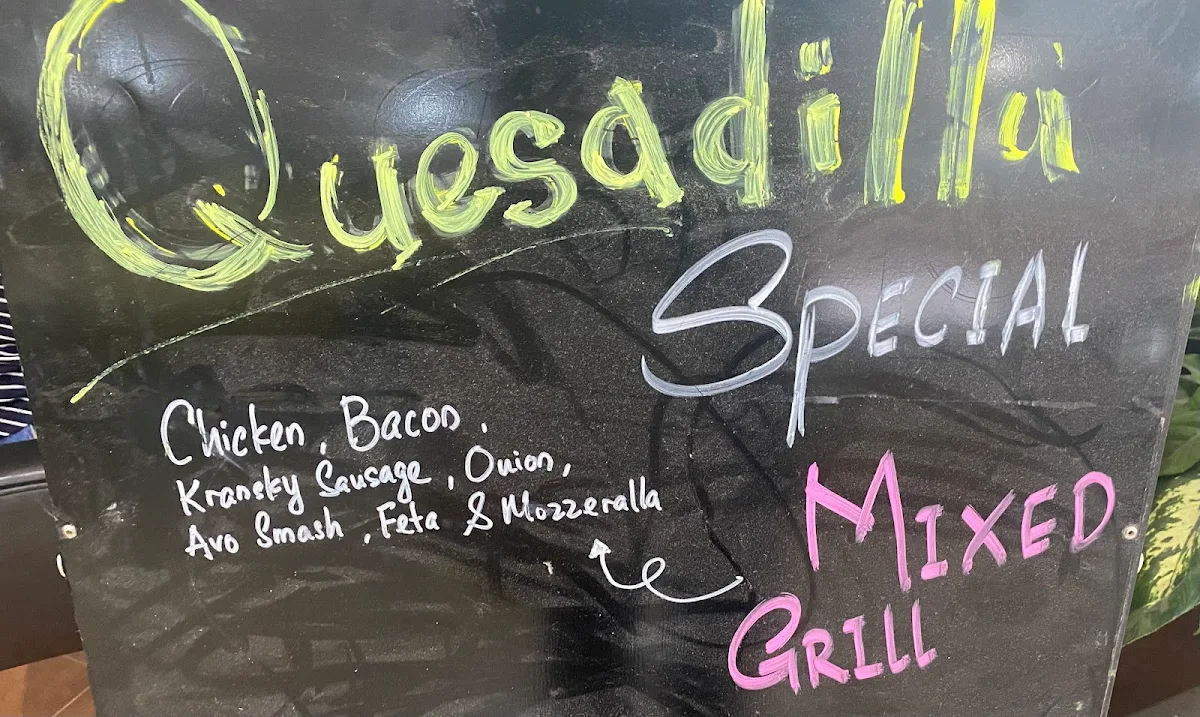 Quesadilla
SPECIAL
Chicken, Bacon,
Kransky Sausage, Onion,
Avo Smash, Feta & Mozzeralla
MIXED
GRILL